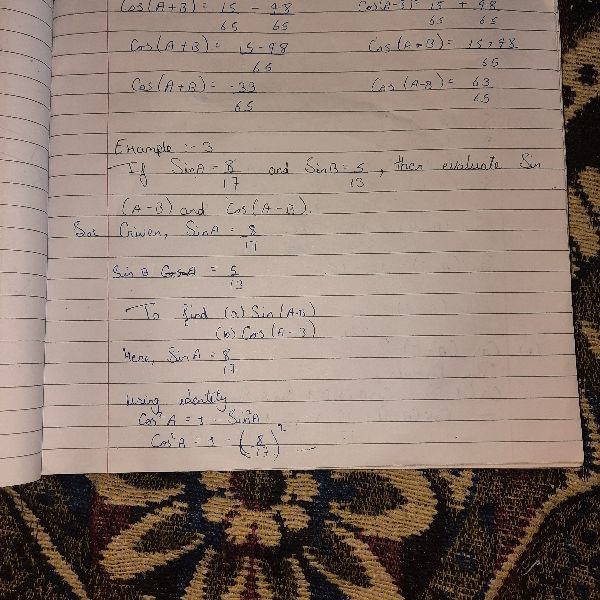 Cos(A+B) = 15 - 48 Cos(A-B) = 15 + 48
65 65 65 65
Cos(A+B) = 15-48 Cos(A-B) = 15+48
65 65
Cos(A+B) = -33 Cos(A-B) = 63
65 65
Example :- 3
If SinA = 8 and SinB = 5, then evaluate Sin
17 13
(A-B) and Cos(A-B).
Sol Given, SinA = 8
17
Sin B CosA = 5
13
To find (a) Sin(A-B)
(b) Cos(A-B)
Here, SinA = 8
17
using identity
Cos²A = 1 - Sin²A
Cos²A = 1 - (8/17)²